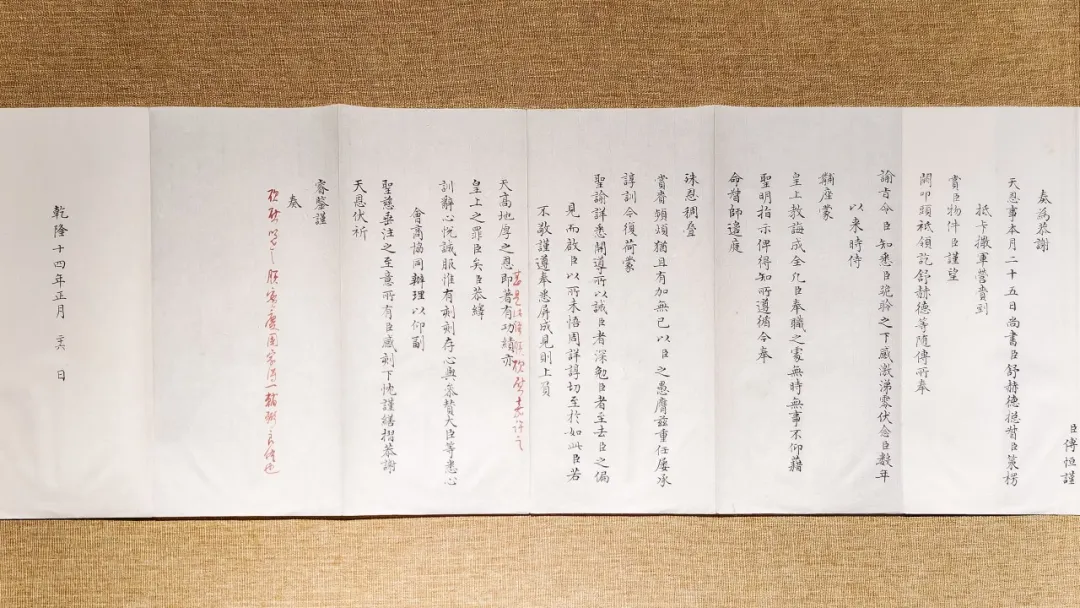 臣傅恒謹
奏為恭謝
天恩事本月二十五日尚書臣舒赫德提督臣策楞
抵卡撒軍營賫到
賞臣物件臣謹望
闕叩頭祗領訖舒赫德等隨傳所奉
諭旨令臣知悉臣跪聆之下感激涕零伏念臣數年
以來時侍
黼座蒙
皇上教誨成全凡臣奉職之處無時無事不仰藉
聖明指示俾得知所遵循今奉
命督師遠廑
殊恩稠疊
賞賚頻煩猶且有加無已以臣之愚膺茲重任屢承
諄訓今復荷蒙
聖諭詳悉開導所以誡臣者深勉臣者至去臣之偏
見而啟臣以所未悟周詳諄切至於如此臣若
不敬謹遵奉悉屏成見則上負
天高地厚之恩即著有功績亦
皇上之罪臣矣臣恭繹
訓辭心悅誠服惟有刻刻存心與參贊大臣等悉心
會商協同辦理以仰副
聖慈垂注之至意所有臣感刻下忱謹繕摺恭謝
天恩伏祈
睿鑒謹
奏
乾隆十四年正月 日